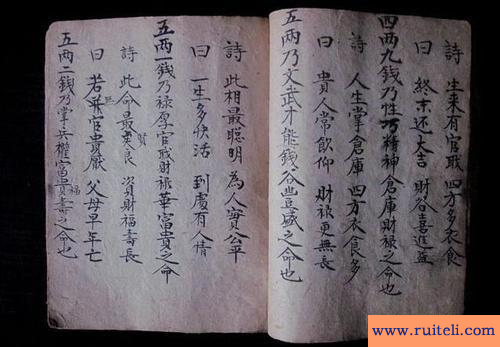 詩 生来有官耺 四方多衣食
曰 終末还大吉 財谷喜進益
四两九錢乃性巧精神倉庫財禄之命也
詩 人生掌倉庫 四方衣食多
曰 貴人常飲仰 財禄更無長
五两乃文武才能錢谷豊盛之命也
詩 此相最聰明 為人實公平
曰 一生多快活 到處有人情
五两一錢乃禄厚官耺財禄華富貴之命
詩 此命最賢良 資財福壽長
曰 若兼官貴厭 父母早年亡
五两二錢乃掌兵權富貴福壽之命也
www.ruiteli.com